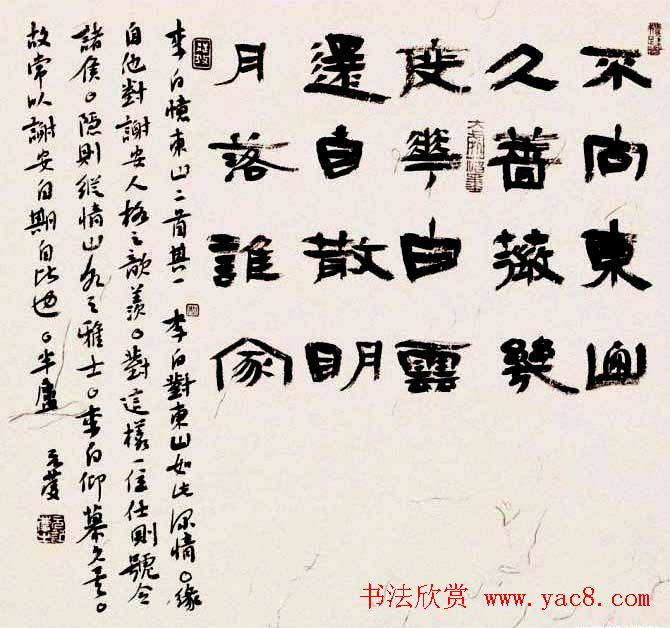 不向東山
久薔薇幾
度華白雲
還自散明
月落誰家
李白憶東山二首其一 李白對東山如此深情。緣
自他對謝安人格之歆羨。對這樣一位仕則號令
諸侯。隱則縱情山水之雅士。李白仰慕久矣。
故常以謝安自期自比也。半廬
书法欣赏 www.yac8.com